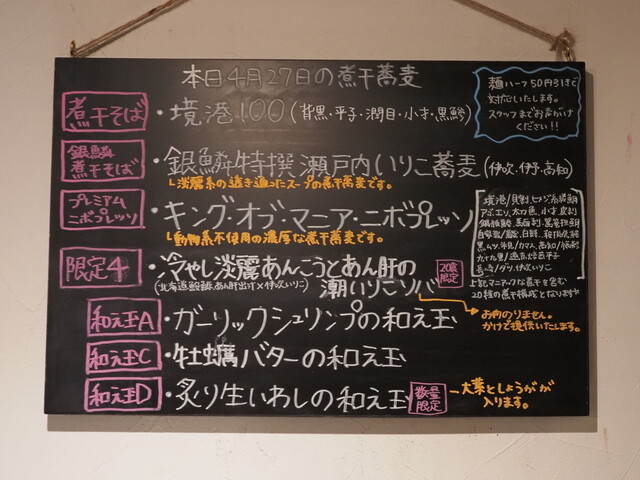 本日4月27日の煮干蕎麦
麺ハーフ50円引きで
対応いたします。
スタッフまでお声がけ
ください!!
煮干そば
・境港100(背黒・平子・潤目・小才・黒鯵)
銀鱗
煮干そば
・銀鱗特撰瀬戸内いりこ蕎麦(伊吹・伊予・高知)
└淡麗系の透き通ったスープの煮干蕎麦です。
プレミアム
ニボプレッソ
・キング・オブ・マニア・ニボプレッソ
└動物系不使用の濃厚な煮干蕎麦です。
上記マニアックな煮干を含む
20種の煮干構成となります
限定4
・冷やし淡麗あんこうとあん肝の
(北海道鮟鱇あん肝出汁×伊吹いりこ)
潮いりこソバ
20食
限定
お肉のりません。
かけで提供いたします。
和え玉A
・ガーリックシュリンプの和え玉
和え玉C
・牡蠣バターの和え玉
和え玉D
・炙り生いわしの和え玉
数量
限定
大葉としょうがが
入ります。